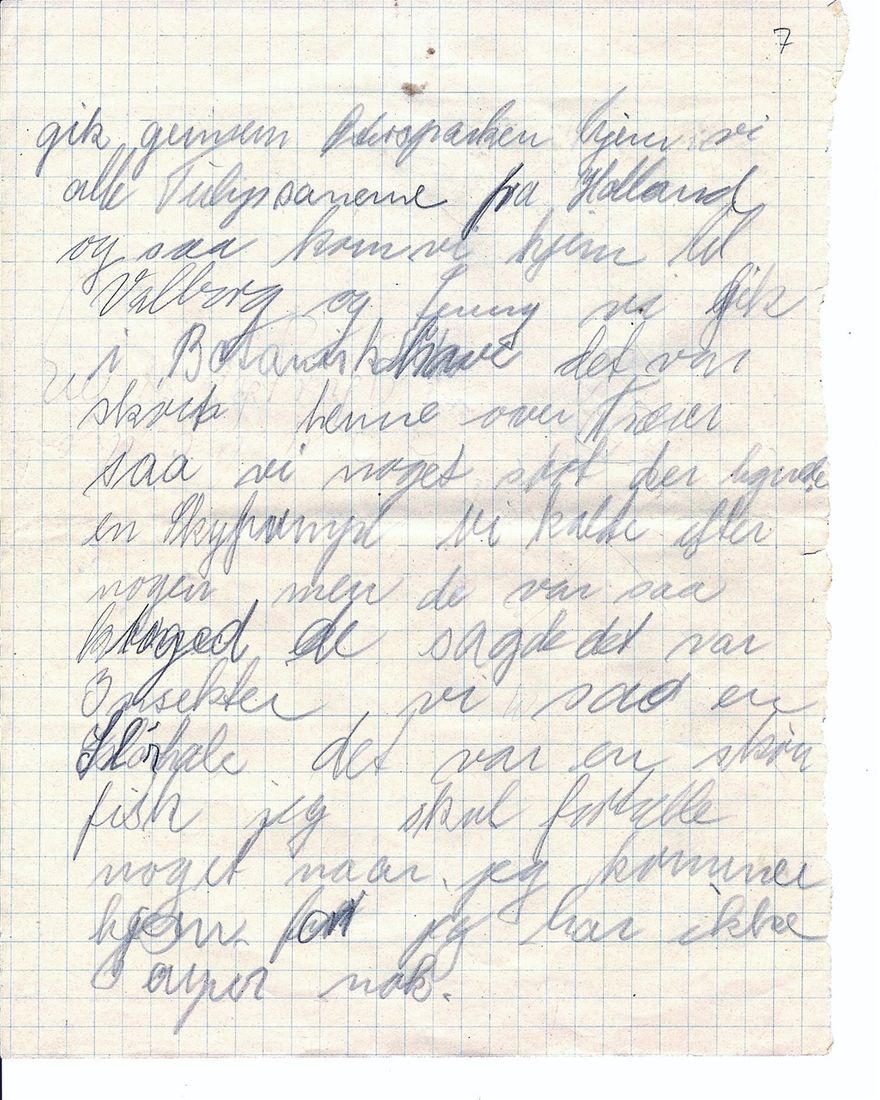 7
gik gennem Ørstsparken hjem vi
alle Tulipsanerne fra Holland
og saa kom vi hjem til
Valborg og Jenny vi gik
i Botanisk det var
skønt henne over Træer
saa vi noget stort der lignede
en Skypumpe Vi kaldte efter
nogen men de var saa
kloged de sagde det var
Insekter vi saa en
Slørhale det var en skøn
fisk jeg skal fortælle
noget naar jeg kommer
hjem for jeg har ikke
Papir nok.